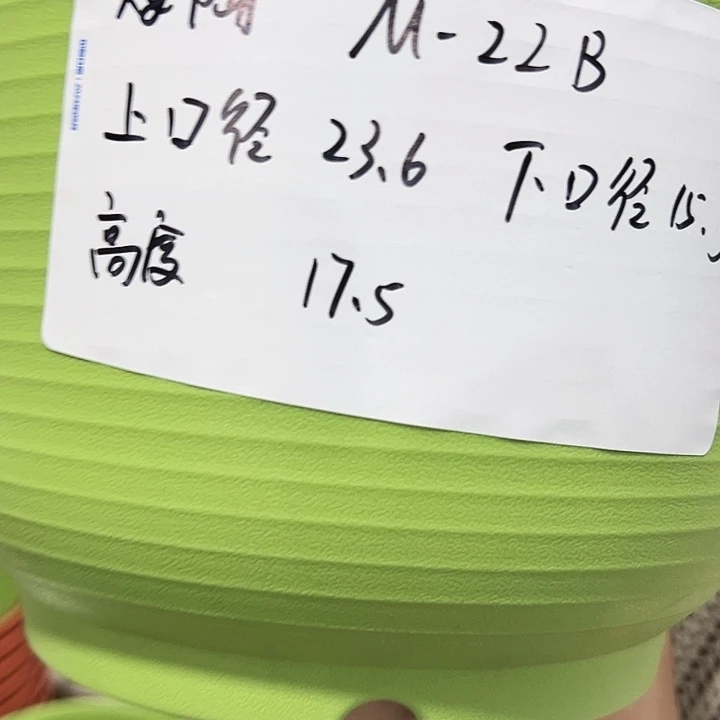 M-22B
上口径 23.6 下口径 15.
高度 17.5